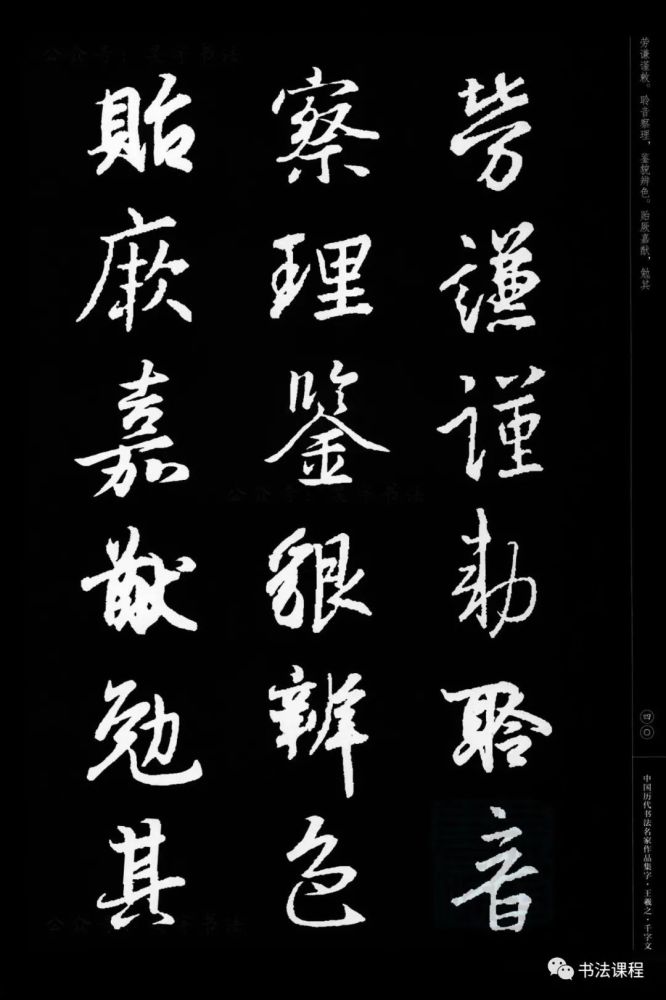 劳谦谨敕。聆音察理，鉴貌辨色。贻厥嘉猷，勉其
勞謙謹勅聆音
察理鑒貌辨色
貽厥嘉猷勉其
四〇
中国历代书法名家作品集字·王羲之·千字文
书法课程